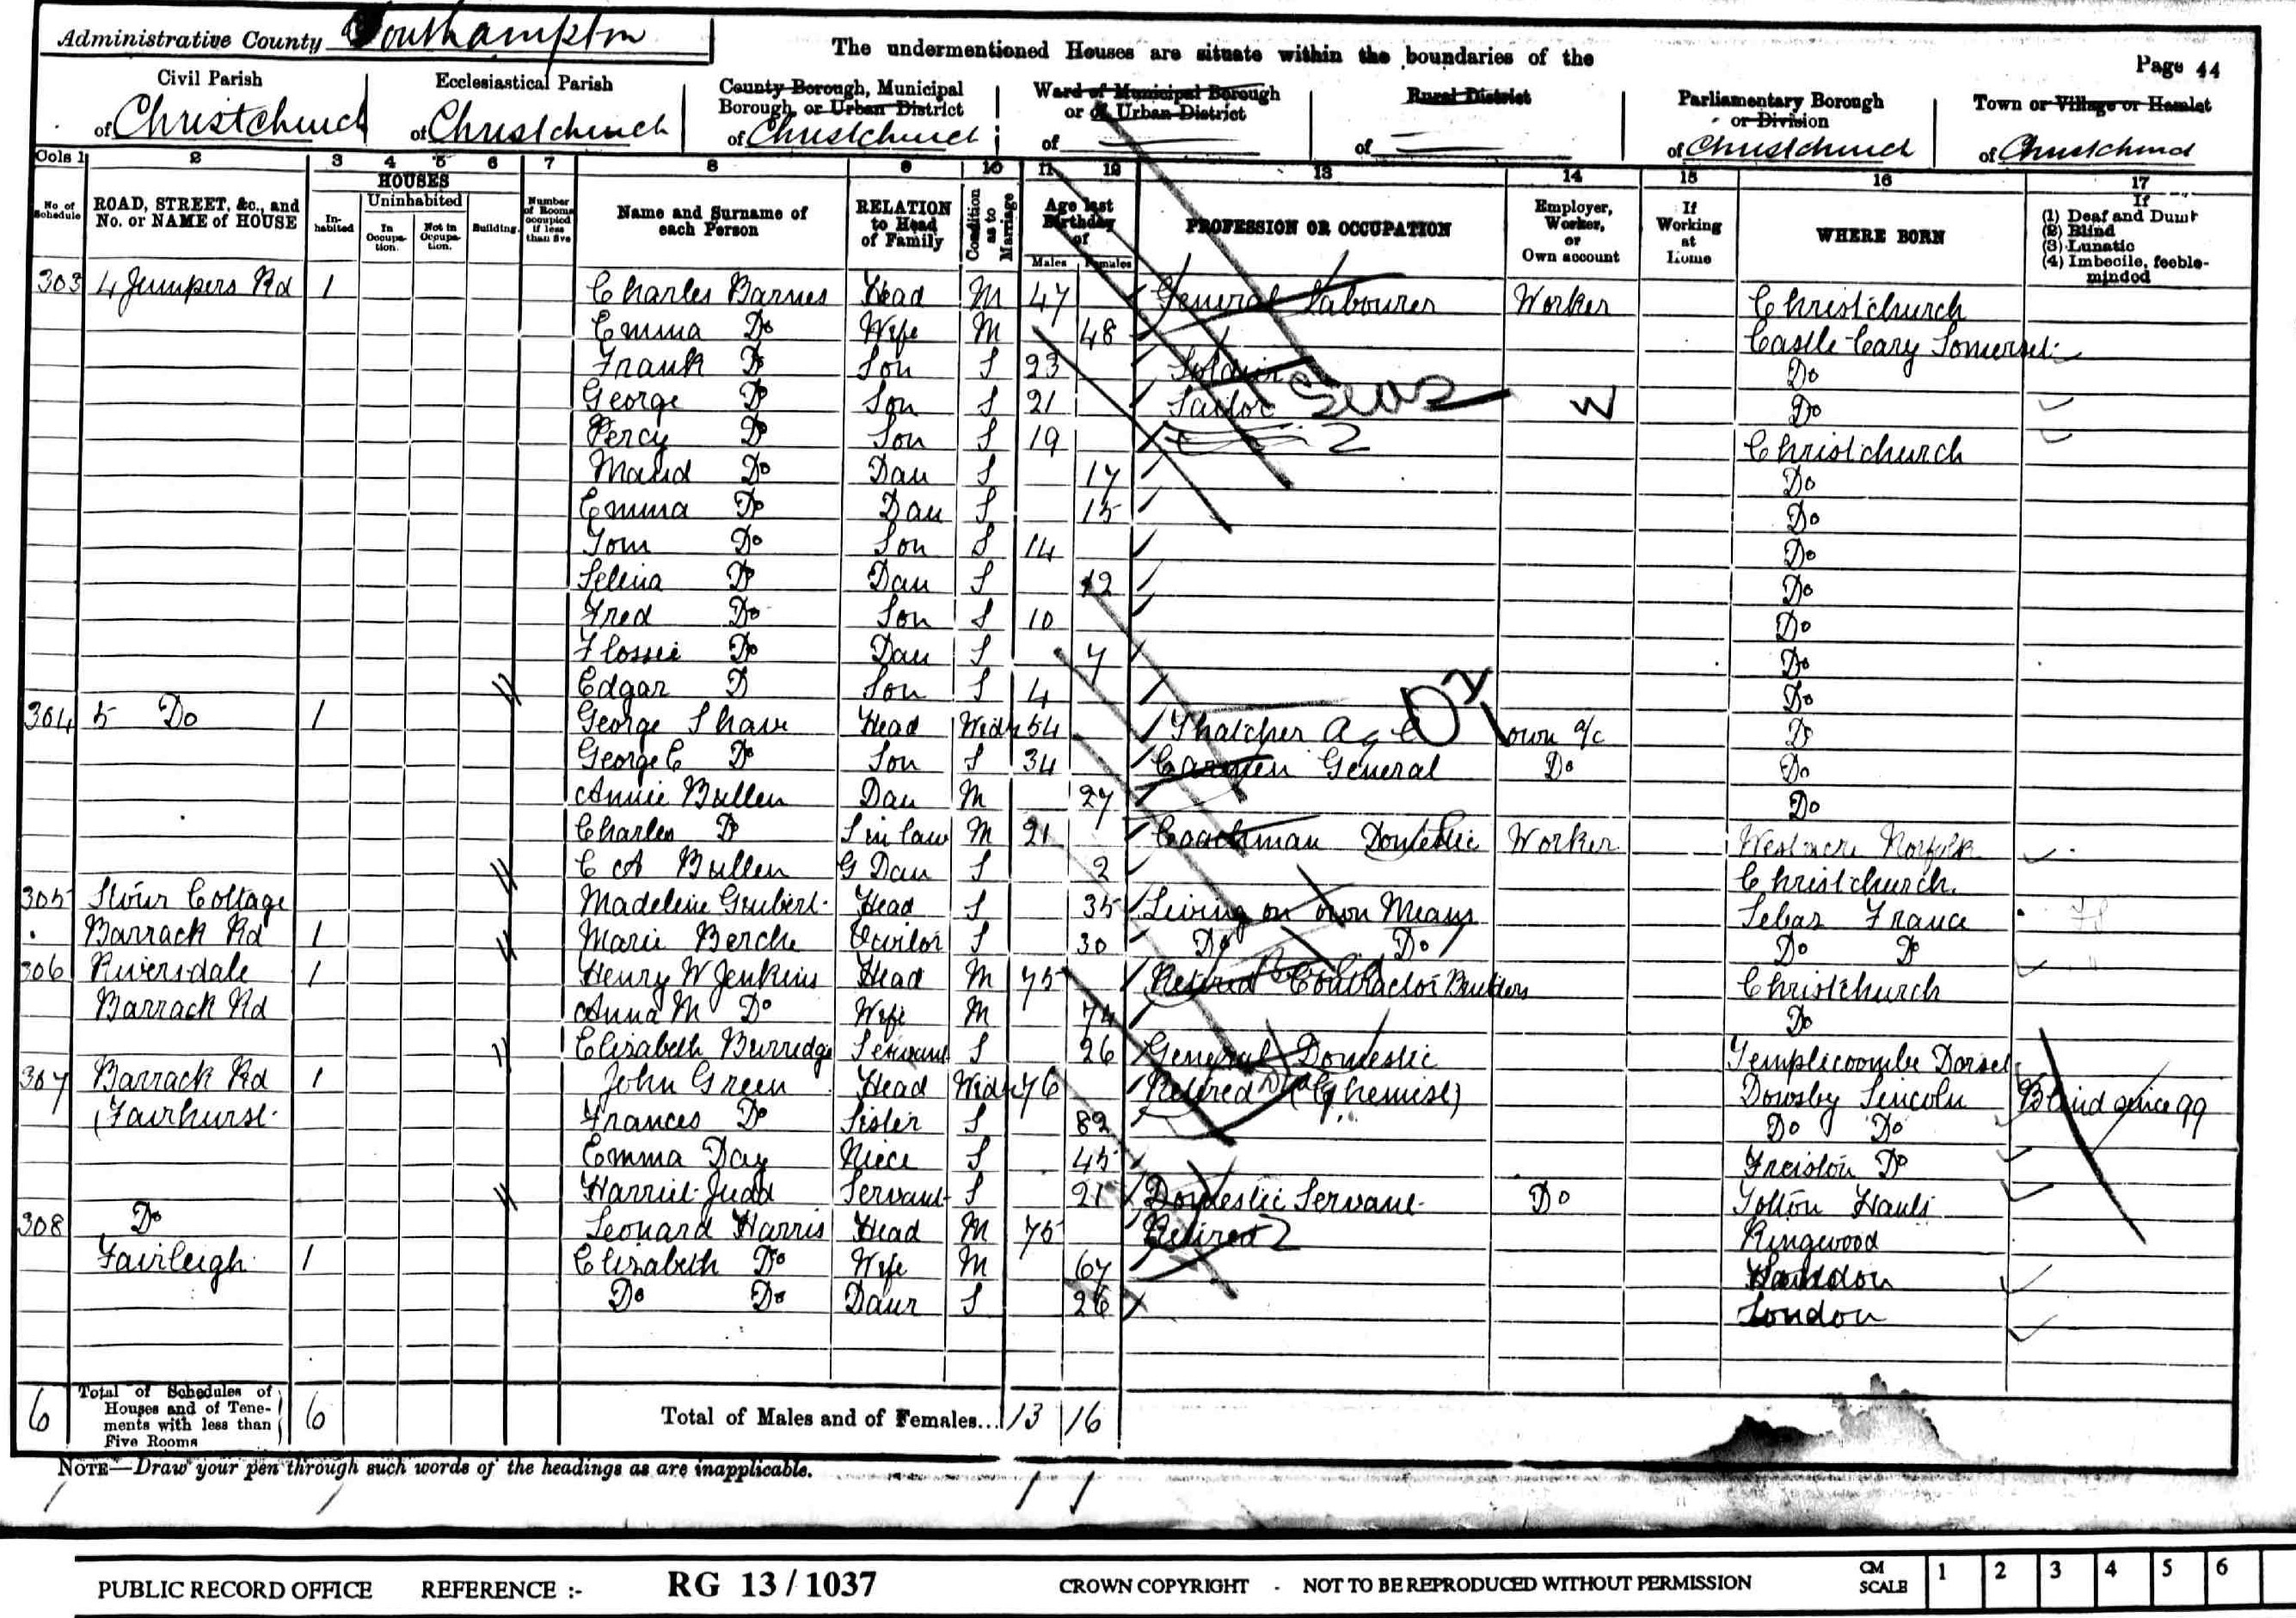 Administrative County Southampton
The undermentioned Houses are situate within the boundaries of the
Page 44
Civil Parish of Christchurch
Ecclesiastical Parish of Christchurch
County Borough, Municipal Borough, or Urban District of Christchurch
Ward of Municipal Borough or of Urban District of
Rural District of
Parliamentary Borough or Division of Christchurch
Town or Village or Hamlet of Christchurch
Cols 1 2 3 4 5 6 7 8 9 10 11 12 13 14 15 16 17
No of Schedule
ROAD, STREET, &c., and No. or NAME of HOUSE
HOUSES
Inhabited
Uninhabited
In Occupation.
Not in Occupation.
Building
Number of Rooms occupied if less than five
Name and Surname of each Person
RELATION to Head of Family
Condition as to Marriage
Age last Birthday of
Males Females
PROFESSION OR OCCUPATION
Employer, Worker, or Own account
If Working at Home
WHERE BORN
If
(1) Deaf and Dumb
(2) Blind
(3) Lunatic
(4) Imbecile, feeble-minded
303 4 Jumpers Rd 1 Charles Barnes Head M 47 General Labourer Worker Christchurch
Emma Do Wife M 48 Castle Cary Somerset
Frank Do Son S 23 Soldier Do
George Do Son S 21 Sailor Seas W Do
Percy Do Son S 19 Christchurch
Maud Do Dau S 17 Do
Emma Do Dau S 15 Do
Tom Do Son S 14 Do
Selina Do Dau S 12 Do
Fred Do Son S 10 Do
Flossie Do Dau S 7 Do
Edgar D Son S 4 Do
304 5 Do 1 George Shave Head Widr 54 Thatcher Ag own a/c Do
George C Do Son S 34 Carmen General Do Do
Annie Bullen Dau M 27 Do
Charles Do S in law M 21 Coachman Domestic Worker Westacre Norfolk
C A Bullen G Dau S 2 Christchurch
305 Stour Cottage Madeline Head S 35 Living on own Means France
Barrack Rd 1 Marie Berche Visitor S 30 Do Do Do Do
306 Riversdale 1 Henry W Jenkins Head M 75 Retired Contractor Builders Christchurch
Barrack Rd Anna M Do Wife M 74 Do
Elizabeth Burridge Servant S 26 General Domestic Templecoombe Dorset
307 Barrack Rd 1 John Green Head Widr 76 Retired (Chemist) Dowsby Lincoln Blind since 99
(Fairhurst Frances Do Sister S 82 Do Do
Emma Day Niece S 45 Freiston Do
Harriet Judd Servant S 21 Domestic Servant Do Totton Hants
308 Do Leonard Harris Head M 75 Retired Ringwood
Fairleigh 1 Elizabeth Do Wife M 67
Do Do Daur S 26 London
6 Total of Schedules of Houses and of Tenements with less than Five Rooms 6 Total of Males and of Females... 13 16
NOTE—Draw your pen through such words of the headings as are inapplicable.
PUBLIC RECORD OFFICE REFERENCE :- RG 13 / 1037 CROWN COPYRIGHT - NOT TO BE REPRODUCED WITHOUT PERMISSION CM SCALE 1 2 3 4 5 6